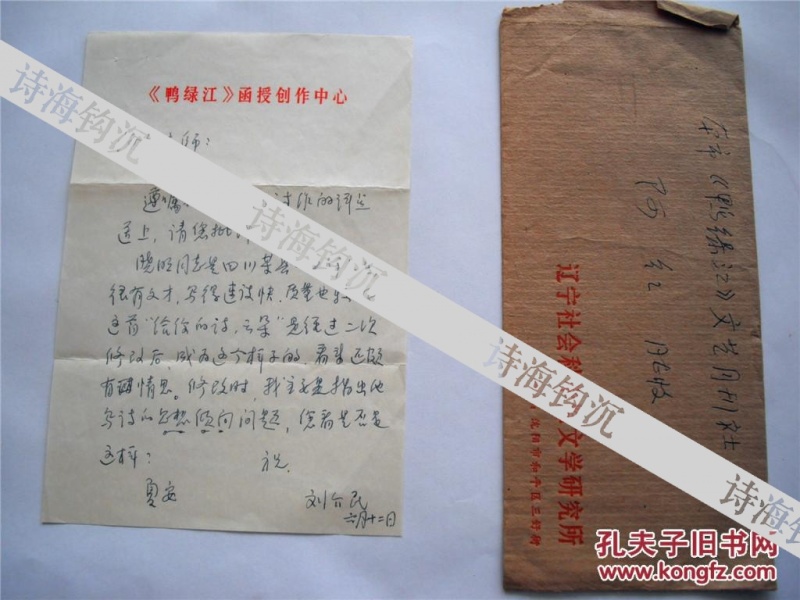 《鸭绿江》函授创作中心
师：
遵嘱 诗作的评
送上，请您批
晓 同志是四川荣县
很有文才，写得速度快，质量也
这首“给你的诗，云朵”是经过二次
修改后，成为这个样子的，看来还颇
有 情思。修改时，我主要是指出他
写诗的思想倾向问题，您看是否是
这样？ 祝
夏安
刘介民
六月十二日
本市《鸭绿江》文艺月刊社
阿红 同志收
辽宁社会科 文学研究所
沈阳市和平区三好街
诗海钩沉
诗海钩沉
诗海钩沉
诗海钩沉
诗海钩沉
诗海钩沉
孔夫子旧书网
www.kongfz.com